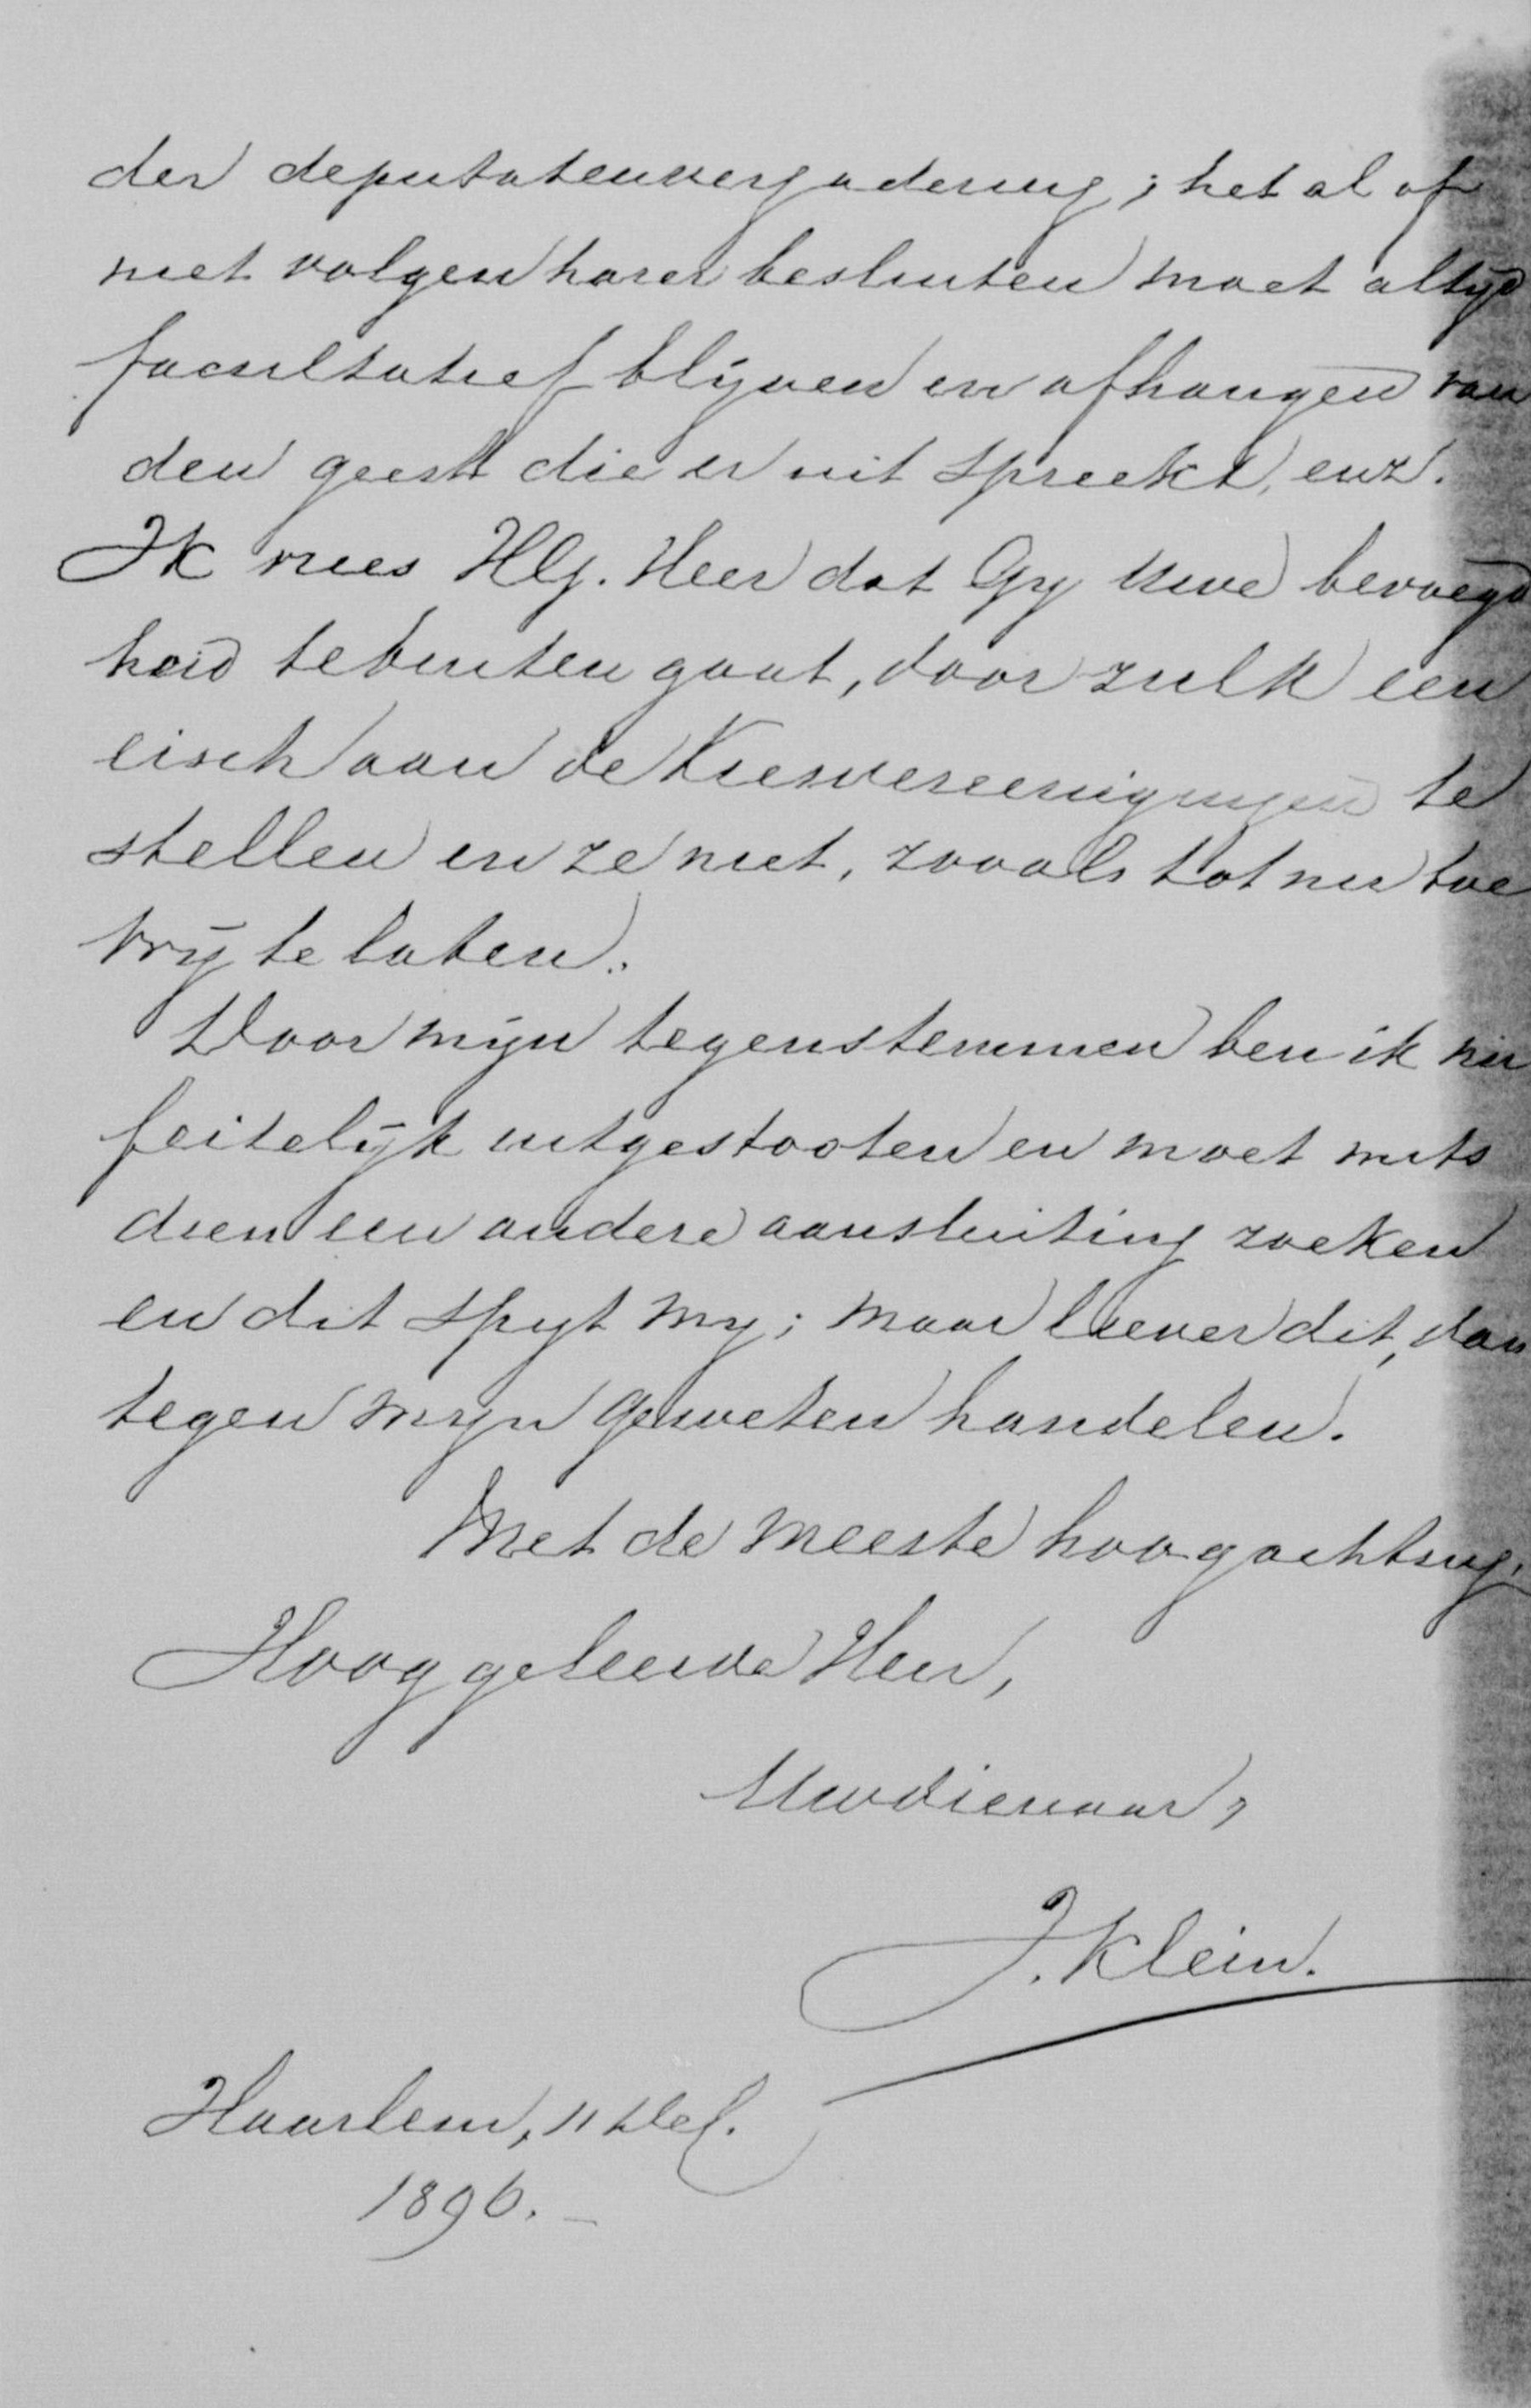 der deputatenvergadering; het al of
niet volgen harer besluiten moet altyd
facultatief blijven en afhangen van
den geest die er uit spreekt, enz.
Ik vrees HlG. Heer dat Gy Uwe bevoegd
heid te buiten gaat, door zulk een
eisch aan de Kiesvereenigingen te
stellen en ze niet, zooals tot nu toe
vrij te laten.
Door mijn tegenstemmen ben ik nu
feitelijk uitgestooten en moet mits
dien een andere aansluiting zoeken
en dit spyt my; maar liever dit, dan
tegen myn geweten handelen.
Met de meeste hoogachting,
Hooggeleerde Heer,
Uw dienaar,
J. Klein.
Haarlem, 11
1896.